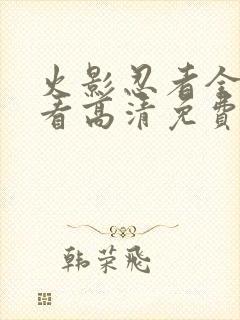 火影忍者全
看高清免費
韩荣飛